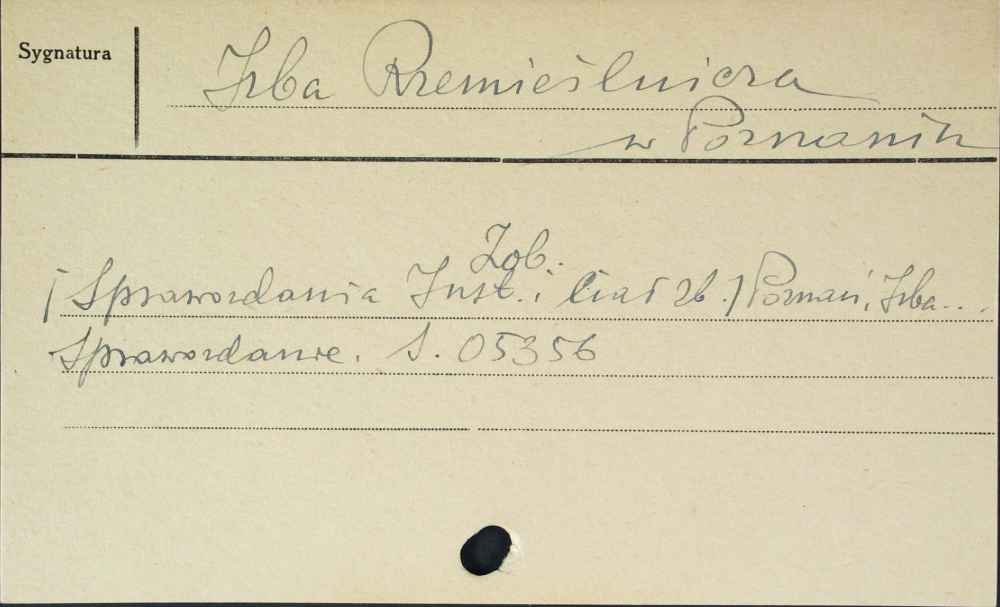 Sygnatura
Izba Rzemieślnicza
w Poznaniu
Zob.
/Sprawozdania Inst. i Ciał zb./ Poznań, Izba...
Sprawozdanie. S. 05356